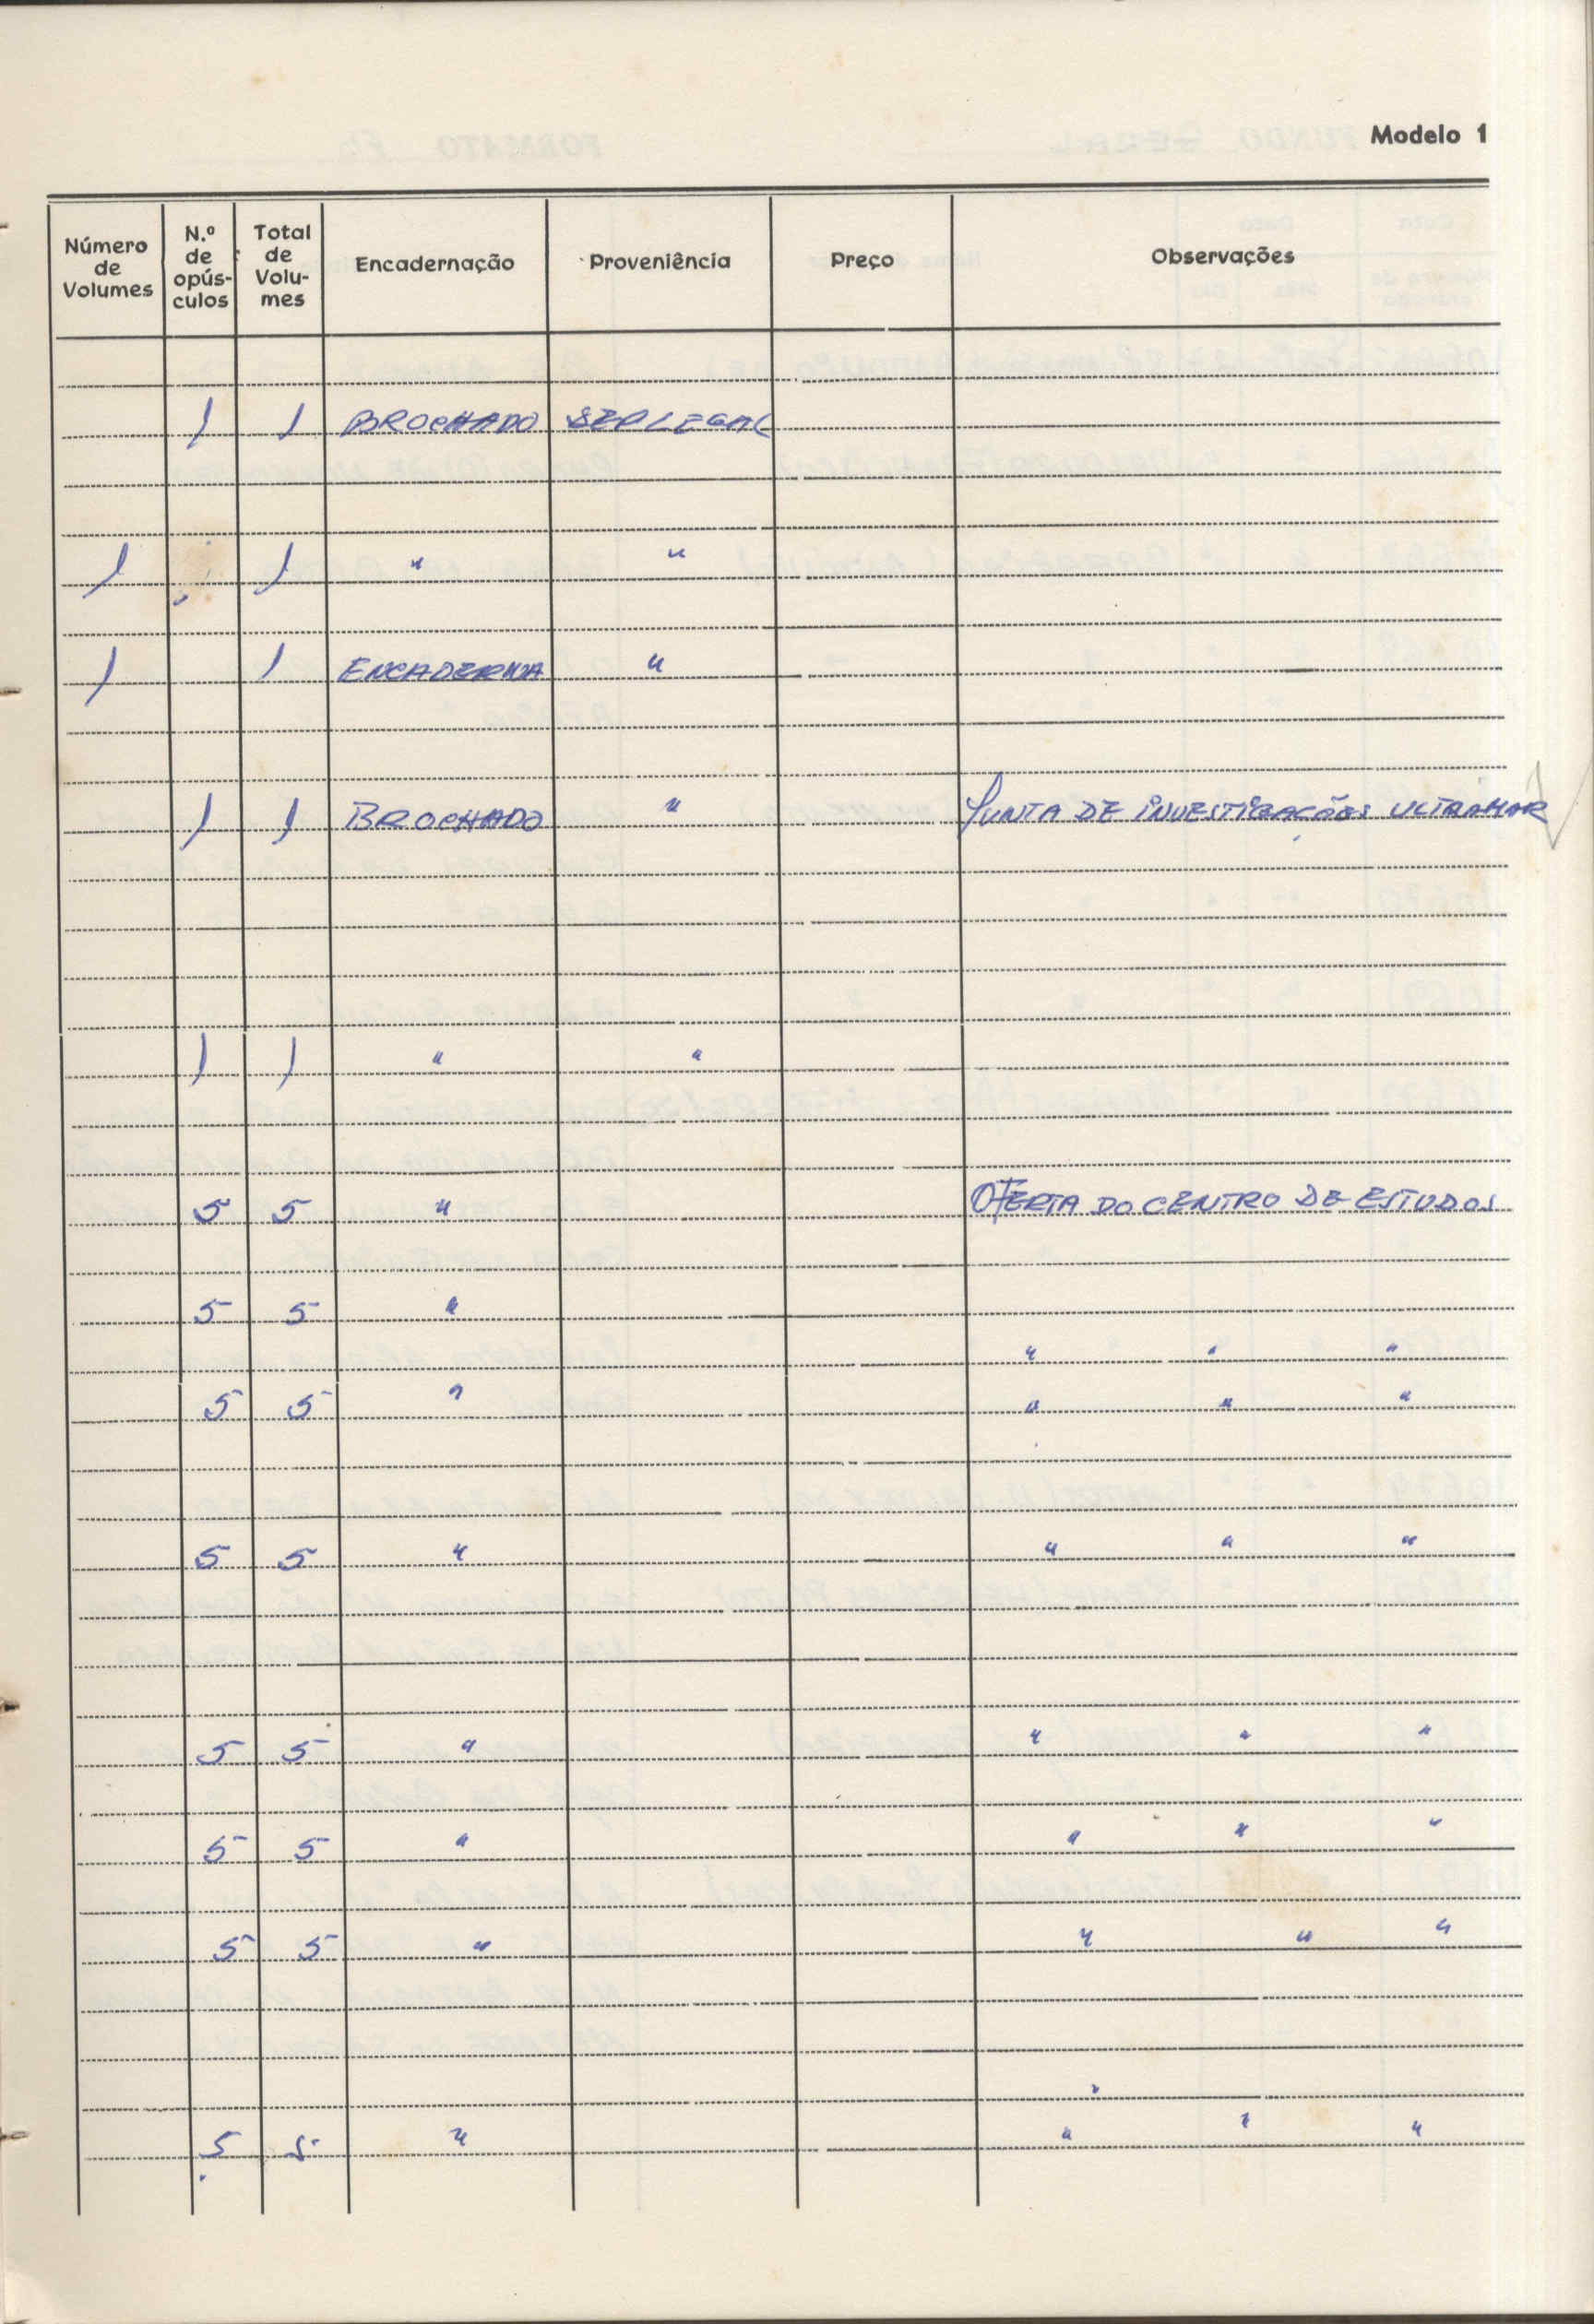 Modelo 1
Número de Volumes N.º de opús-culos Total de Volu-mes Encadernação Proveniência Preço Observações
1 1 BROCHADO DEP LEGAL
1 1 " "
1 1 ENCADERNA "
1 1 BROCHADO " JUNTA DE INVESTIGAÇÕES ULTRAMAR
1 1 " "
5 5 " OFERTA DO CENTRO DE ESTUDOS
5 5 "
" " "
5 5 " " " "
5 5 " " " "
5 5 " " " "
5 5 " " " "
5 5 " " " "
5 5 " " " "